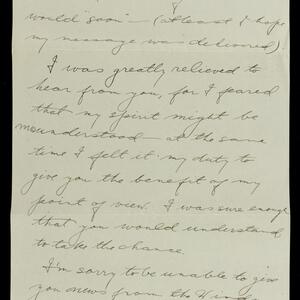 would "soon" — (at least I hope
my message was delivered)
I was greatly relieved to
hear from you, for I feared
that my spirit might be
misunderstood — at the same
time I felt it my duty to
give you the benefit of my
point of view. I was sure enough
that you would understand
to take the chance.
I'm sorry to be unable to give
you news from the